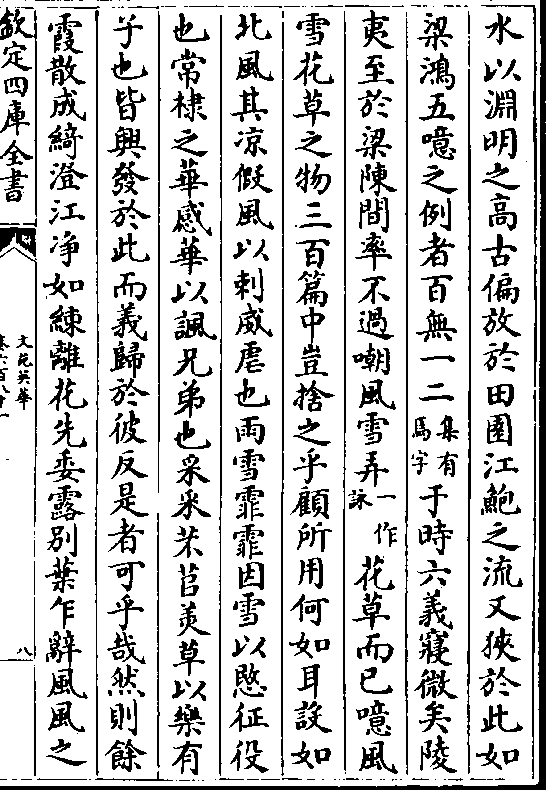 水以淵明之高古偏放於田園江鮑之流又狹於此如
梁鴻五噫之例者百無一二集有焉字于時六義寖微矣陵
夷至於梁陳間率不過嘲風雪弄一作詠花草而已噫風
雪花草之物三百篇中豈捨之乎顧所用何如耳設如
北風其涼假風以刺威虐也雨雪霏霏因雪以愍征役
也常棣之華感華以諷兄弟也采采芣苢美草以樂有
子也皆興發於此而義歸於彼反是者可乎哉然則餘
霞散成綺澄江净如練離花先委露別葉乍辭風風之
欽定四庫全書
文苑英華
八